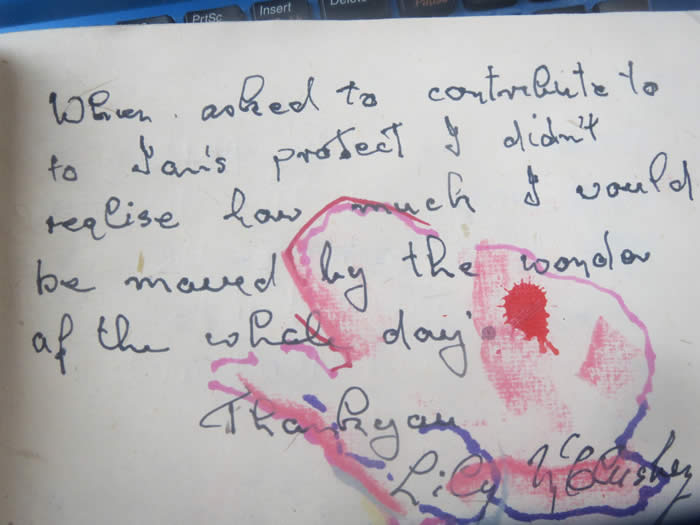 PrtSc
Insert
Delete
Pause
When asked to contribute to
to Ian's protect I didn't
realise how much I would
be moved by the wonder
of the whole day.
Thankyou
Lily McCluskey